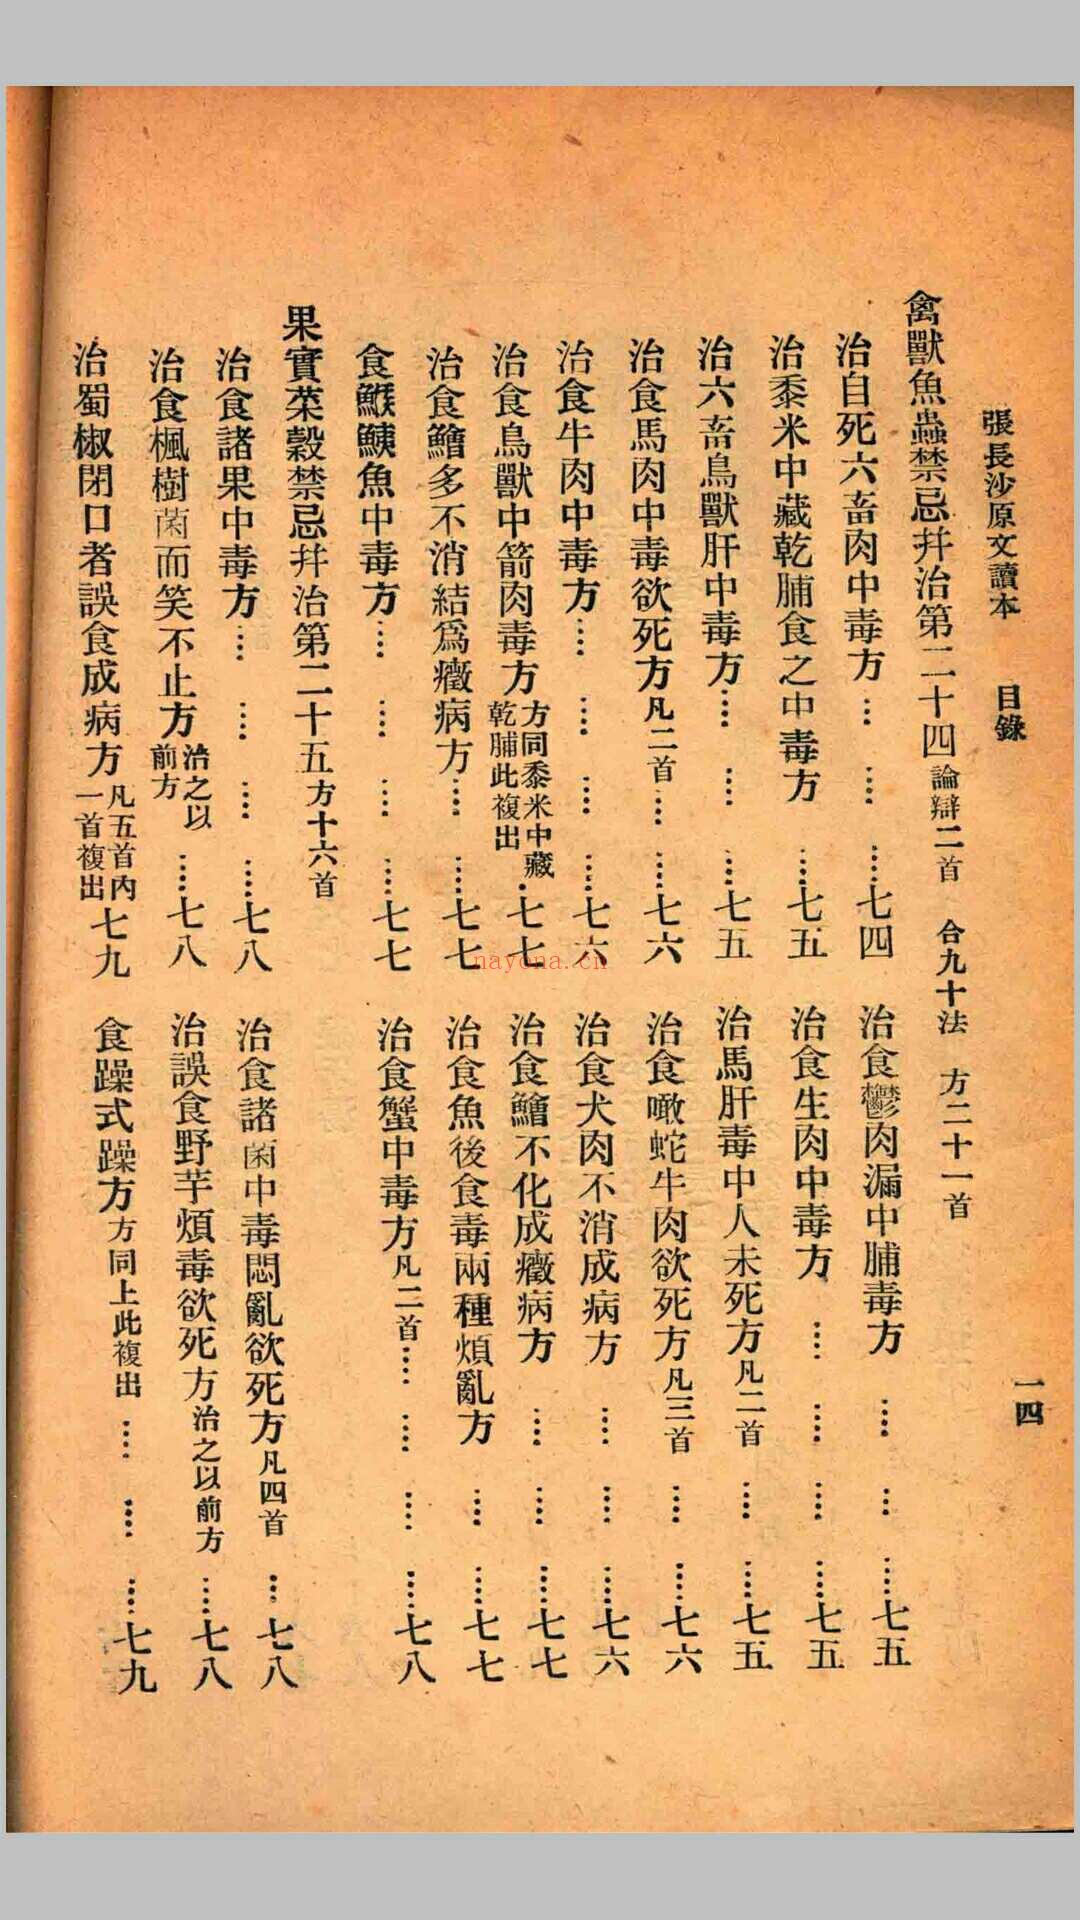 張長沙原文讀本　目錄　一四
禽獸魚蟲禁忌幷治第二十四論辯二首　合九十法　方二十一首
治自死六畜肉中毒方…　…　……七四
治食鬱肉漏中脯毒方　…　…　……七五
治黍米中藏乾脯食之中毒方　……七五
治食生肉中毒方　……　……　……　……七五
治六畜鳥獸肝中毒方……　……　……七五
治馬肝毒中人未死方凡二首　……　……七五
治食馬肉中毒欲死方凡二首……　……七六
治食噉蛇牛肉欲死方凡三首　…　……七六
治食牛肉中毒方……　……　……　……七六
治食犬肉不消成病方　……　……　……七六
治食鳥獸中箭肉毒方方同黍米中藏乾脯此複出……七七
治食鱠不化成癥病方　……　……　……七七
治食鱠多不消結爲癥病方……　……七七
治食魚後食毒兩種煩亂方　…　……七七
食鯸鮧魚中毒方……　……　……　……七七
治食蟹中毒方凡二首……　……　……　……七八
果實菜穀禁忌幷治第二十五方十六首
治食諸果中毒方……　……　……　……七八
治食諸菌中毒悶亂欲死方凡四首　…　…七八
治食楓樹菌而笑不止方治之以前方　……七八
治誤食野芋煩毒欲死方治之以前方　……七八
治蜀椒閉口者誤食成病方凡五首內一首複出七九
食躁式躁方方同上此複出　……　……　……七九
nayona.cn